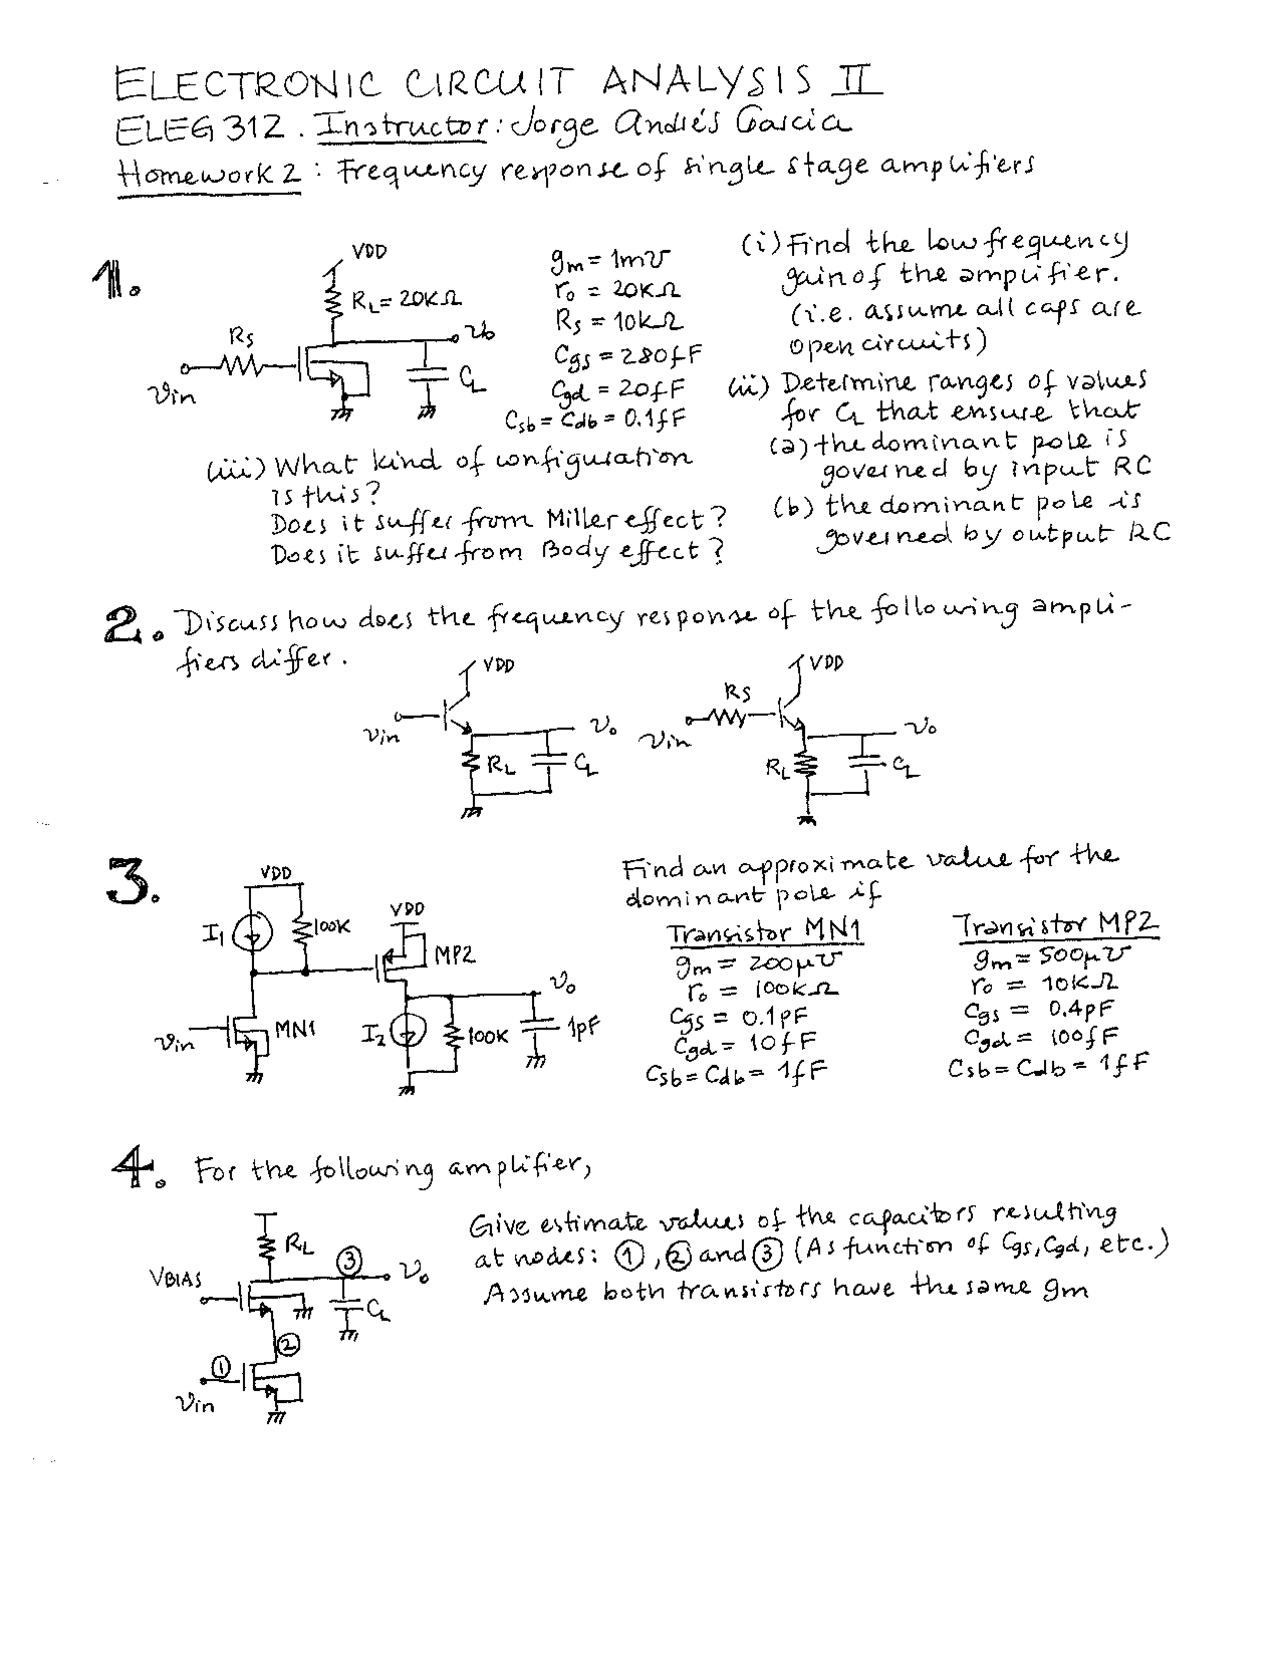 ELECTRONIC CIRCUIT ANALYSIS II
ELEG 312. Instructor: Jorge Andrés Garcia
Homework 2: Frequency response of single stage amplifiers
1.
VDD
RL = 20KΩ
Rs
vo
vin
CL
gm = 1m℧
ro = 20KΩ
Rs = 10KΩ
Cgs = 280fF
Cgd = 20fF
Csb = Cdb = 0.1fF
(i) Find the low frequency
gain of the amplifier.
(i.e. assume all caps are
open circuits)
(ii) Determine ranges of values
for CL that ensure that
(a) the dominant pole is
governed by input RC
(b) the dominant pole is
governed by output RC
(iii) What kind of configuration
is this?
Does it suffer from Miller effect?
Does it suffer from Body effect?
2. Discuss how does the frequency response of the following ampli-
fiers differ.
VDD
vin
vo
RL
CL
VDD
Rs
vin
vo
RL
CL
3.
VDD
I1
100K
VDD
MP2
vo
vin
MN1
I2
100K
1pF
Find an approximate value for the
dominant pole if
Transistor MN1
gm = 200μ℧
ro = 100KΩ
Cgs = 0.1pF
Cgd = 10fF
Csb = Cdb = 1fF
Transistor MP2
gm = 500μ℧
ro = 10KΩ
Cgs = 0.4pF
Cgd = 100fF
Csb = Cdb = 1fF
4. For the following amplifier,
RL
3
VBIAS
vo
CL
2
1
vin
Give estimate values of the capacitors resulting
at nodes: 1, 2 and 3 (As function of Cgs, Cgd, etc.)
Assume both transistors have the same gm